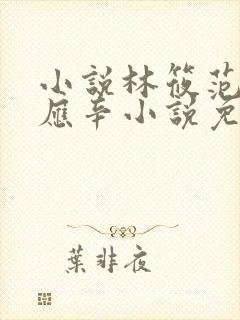 小說林筱范
應辛小說免
葉非夜